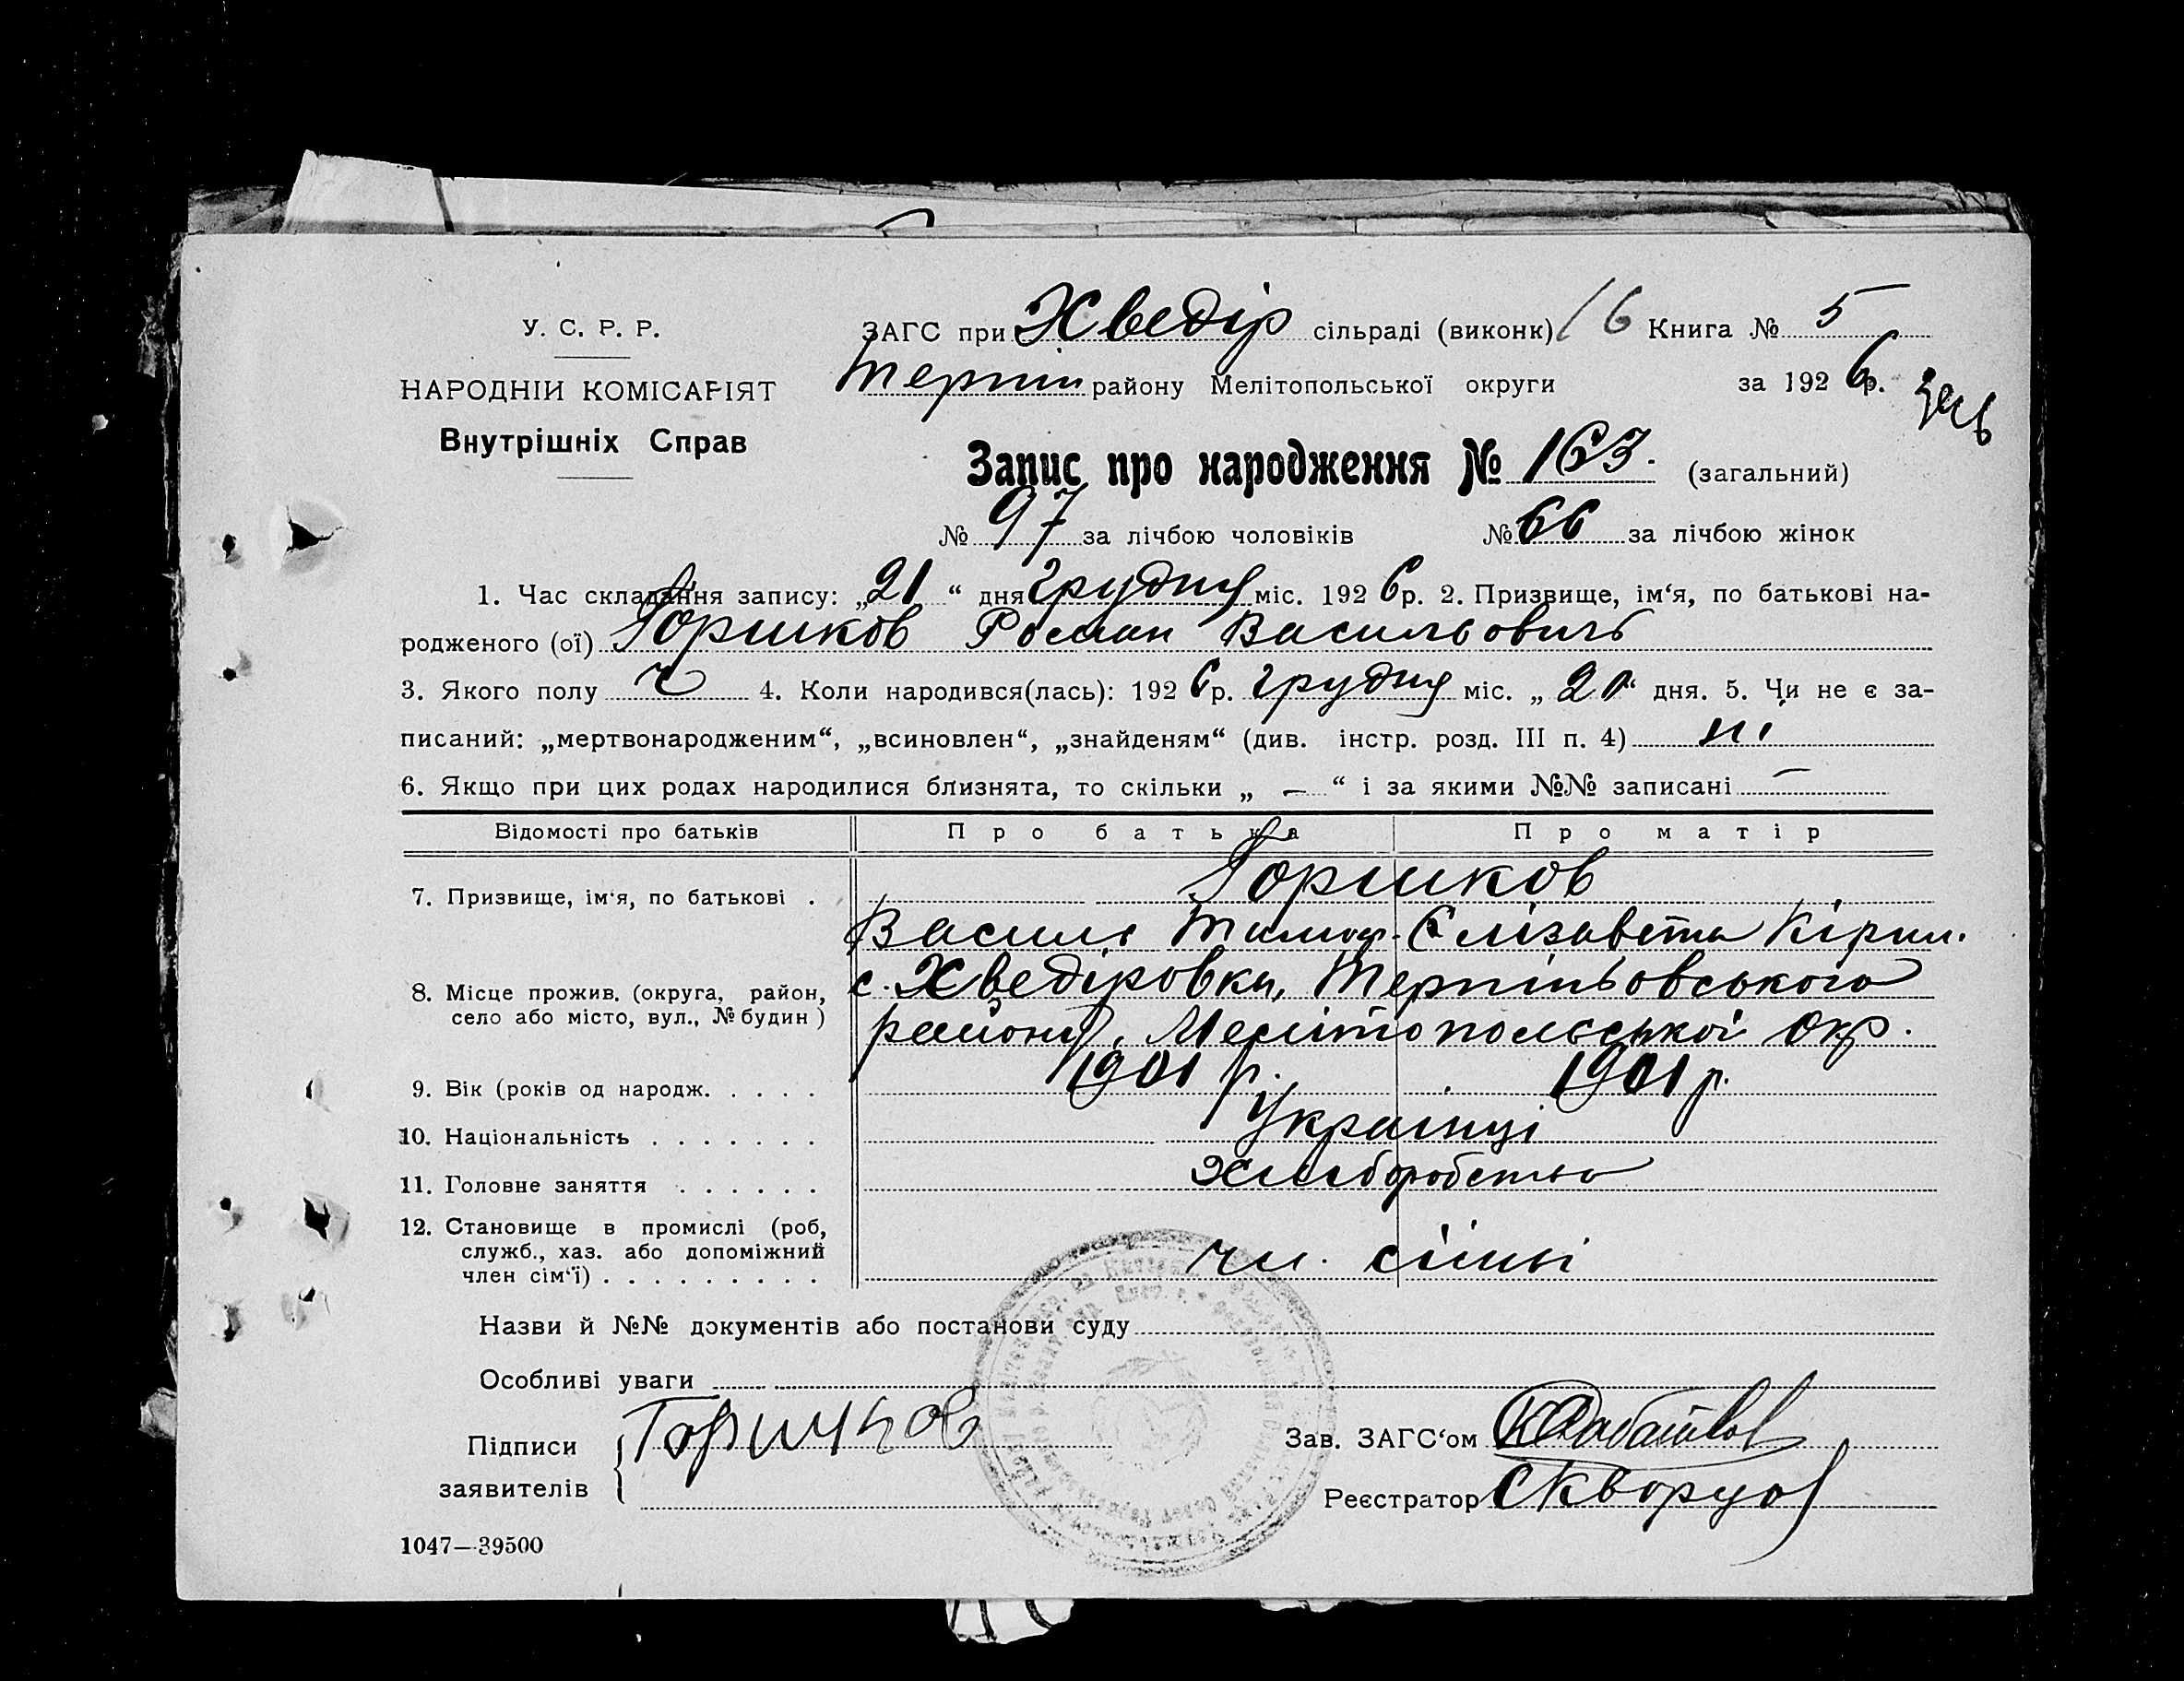 У. С. Р. Р.
НАРОДНІЙ КОМІСАРІЯТ
Внутрішніх Справ
ЗАГС при Хведір сільраді (виконк) 16 Книга № 5
Терпін району Мелітопольської округи за 1926 р.
Запис про народження № 163. (загальний)
№ 97 за лічбою чоловіків № 66 за лічбою жінок
1. Час складання запису: „21“ дня грудня міс. 1926 р. 2. Призвище, ім‘я, по батькові на-
родженого (ої) Горшков Роман Васильович
3. Якого полу ч 4. Коли народився(лась): 1926 р. грудня міс. „20“ дня. 5. Чи не є за-
писаний: „мертвонародженим“, „всиновлен“, „знайденям“ (див. інстр. розд. III п. 4) ні
6. Якщо при цих родах народилися близнята, то скільки „ — “ і за якими №№ записані —
Відомості про батьків Про батька Про матір
7. Призвище, ім‘я, по батькові . Горшков
Василь Тимоф. Єлізавета Кірил.
8. Місце прожив. (округа, район, село або місто, вул., № будин) с. Хведіровка, Терпіньовського
району, Мелітопольської окр.
9. Вік (років од народж. . . . . 1901 р. 1901 р.
10. Національність . . . . . . . Українці
11. Головне заняття . . . . . . Хліборобство
12. Становище в промислі (роб,
служб., хаз. або допоміжний
член сім‘ї) . . . . . . . . . чл. сімьі
Назви й №№ документів або постанови суду
Особливі уваги
Підписи
заявителів Горшков
Зав. ЗАГС‘ом
Реєстратор Скворцов
1047—39500